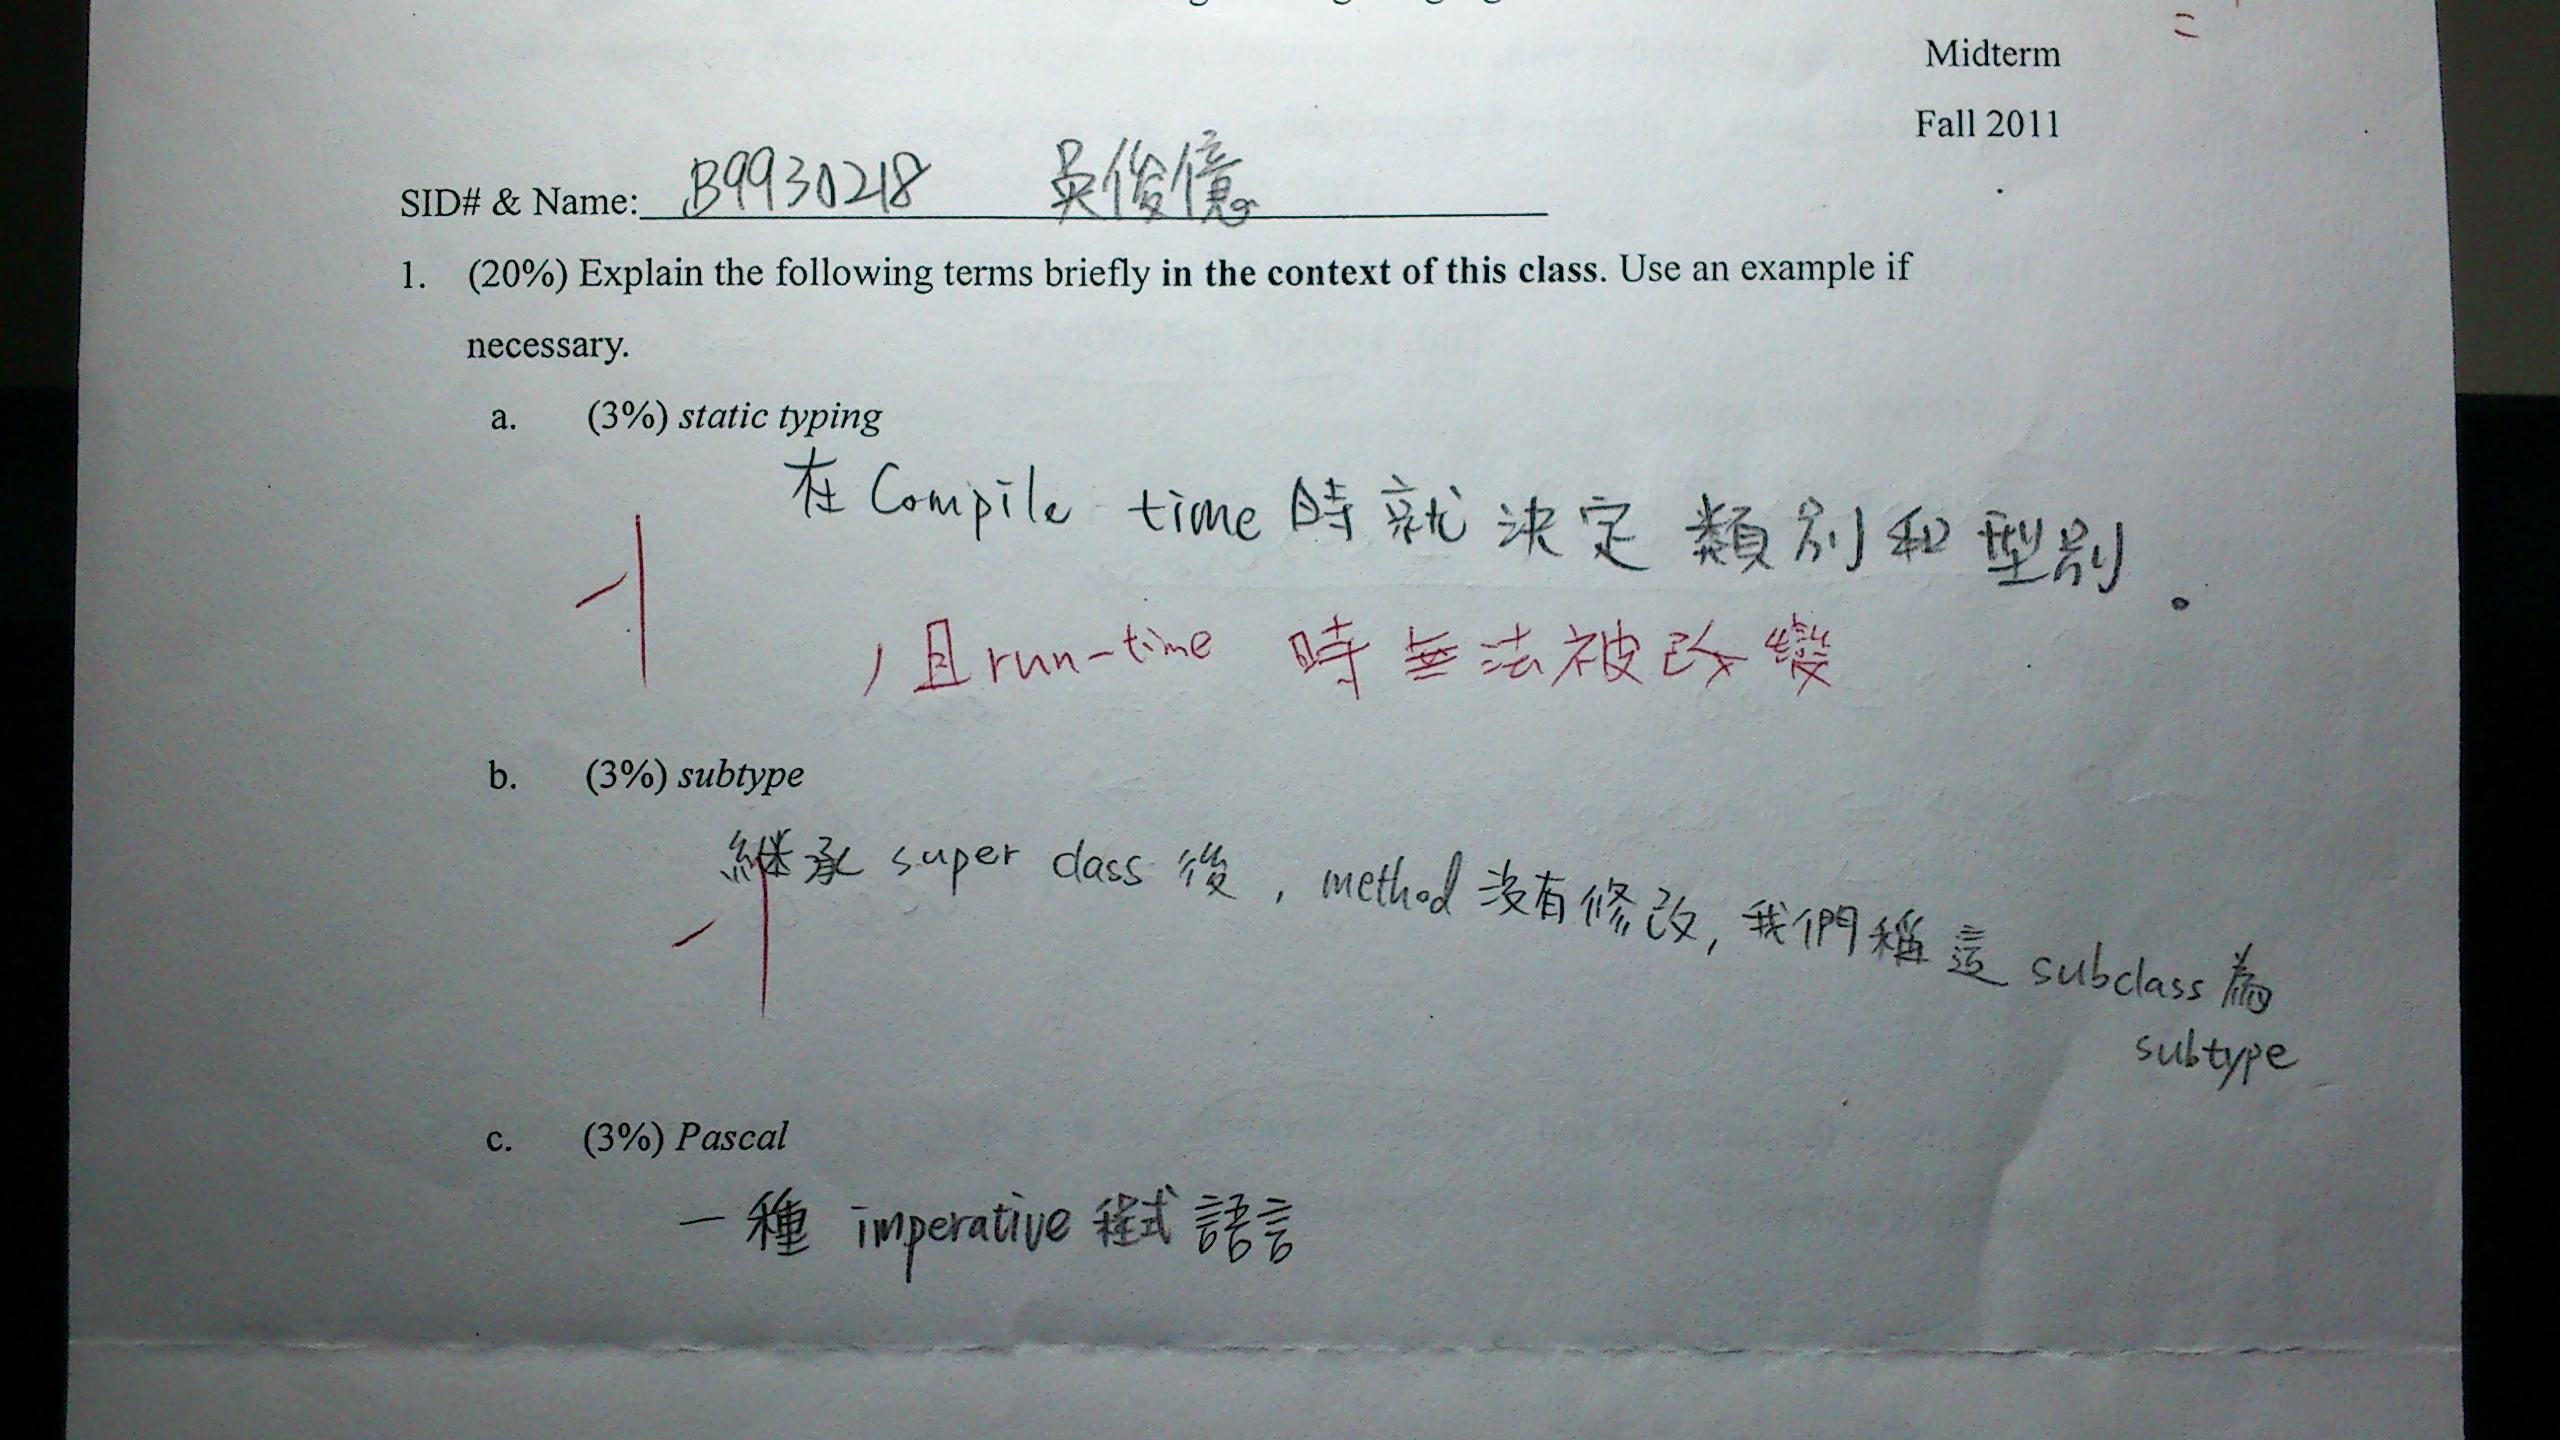 Midterm
Fall 2011
SID# & Name: B9930218 吳俊億
1. (20%) Explain the following terms briefly in the context of this class. Use an example if
necessary.
a. (3%) static typing
在 Compile time 時就決定類別和型別。
-1
，且 run-time 時無法被改變
b. (3%) subtype
繼承 super class 後，method 沒有修改，我們稱這 subclass 為
subtype
-1
c. (3%) Pascal
一種 imperative 程式語言